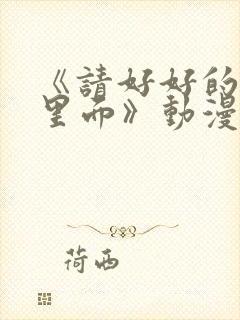 《請好好的
里面》動漫
荷西